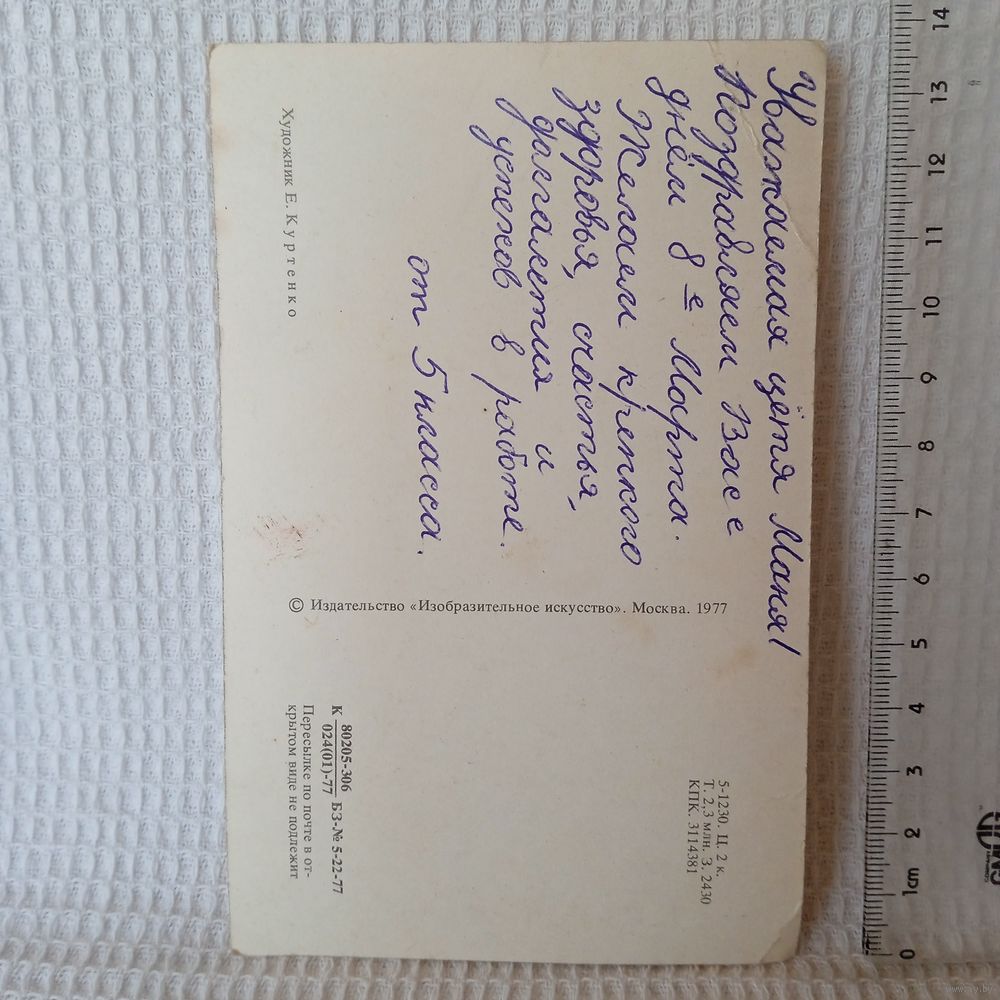 Уважаемая цётя Маня!
Поздравляем Вас с
днём 8 е Марта.
Желаем крепкого
здоровья, счастья,
долголетия и
успехов в работе.
от 5 класса.
Художник Е. Куртенко
© Издательство «Изобразительное искусство». Москва. 1977
5-1230. Ц. 2 к.
Т. 2,3 млн. З. 2430
КПК. 3114381
К 80205-306
024(01)-77 БЗ-№ 5-22-77
Пересылке по почте в от-
крытом виде не подлежит
0 1cm 2 3 4 5 6 7 8 9 10 11 12 13 14
www.ay.by